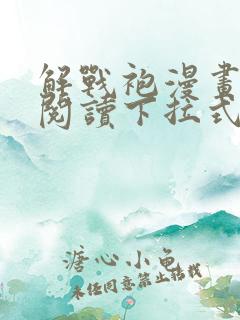 解戰袍漫畫
閱讀下拉式
溏心小龟
未经同意禁止转载